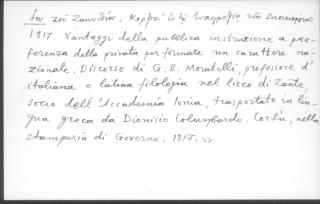 Ἐν τοῦ Ζακυνθίου. Κορφοὶ ἐν τῇ Τυπογραφίᾳ τῆς Διοικήσεως
1817. Vantaggi della pubblica instruzione a pre-
ferenza della privata per formare un carattere na-
zionale. Discorso di G. B. Moratelli, professore d'
italiana e latina filologia nel liceo di Zante,
socio dell'Accademia Ionia, trasportato in lin-
gua greca da Dionisio Columbardo. Corfú, nella
stamperia di Governo. 1817. »